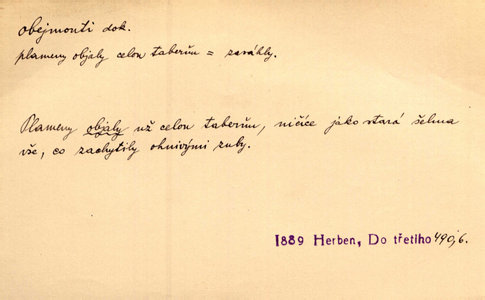 obejmouti dok.
plameny objaly celou tabernu = zasáhly.
Plameny objaly už celou tabernu, ničíce jako stará šelma
vše, co zachytily ohnivými zuby.
1889 Herben, Do třetího 490,6.